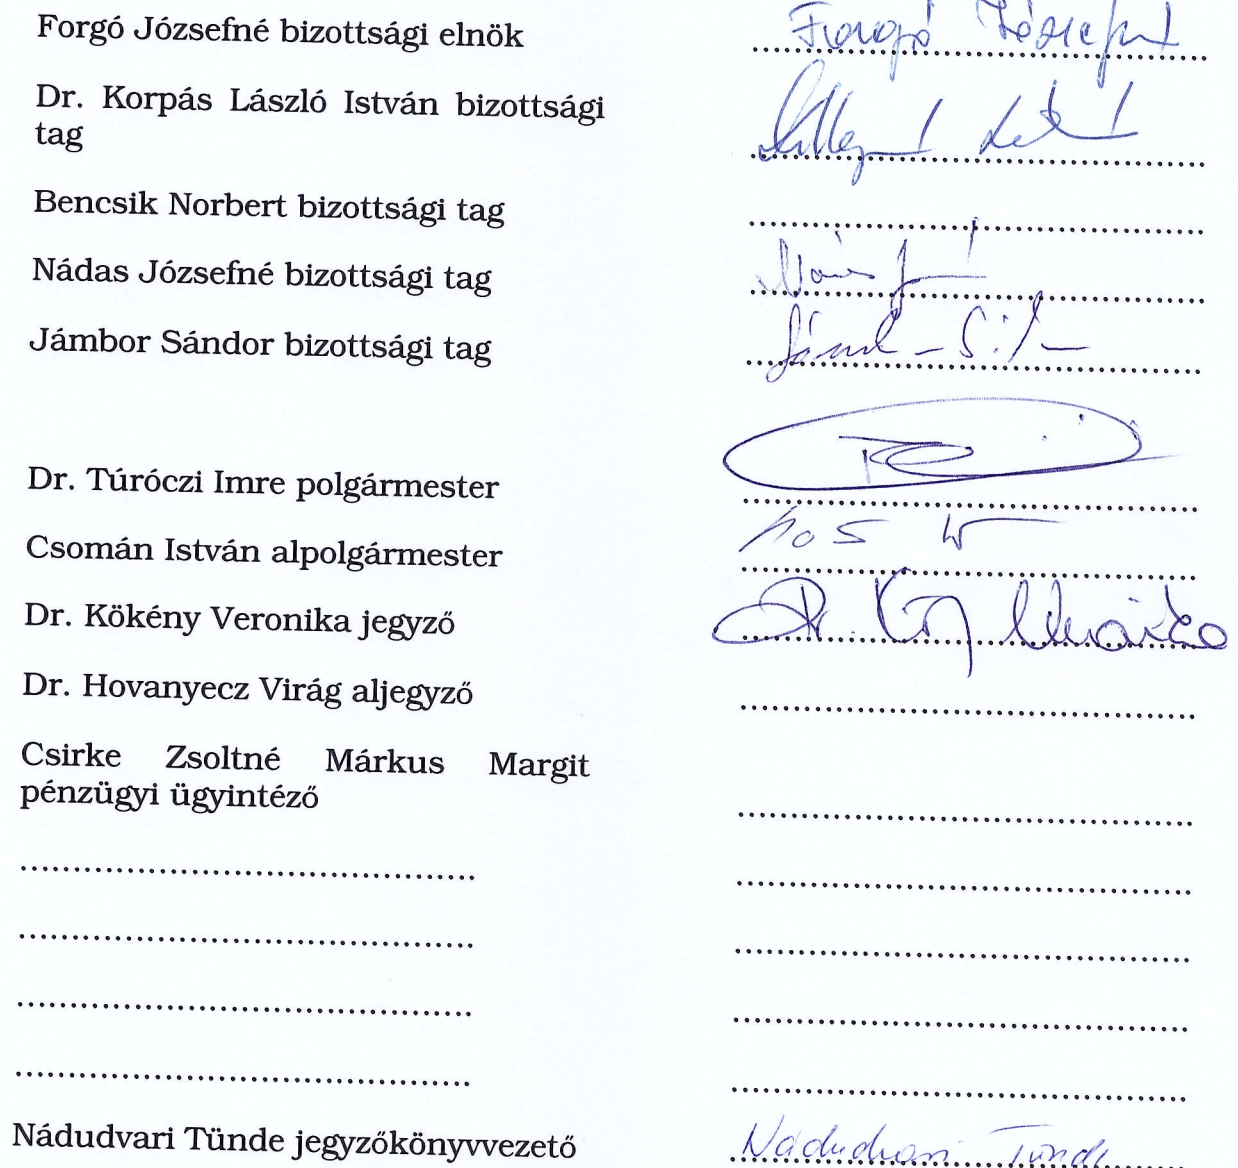 Forgó Józsefné bizottsági elnök Forgó Józsefné
Dr. Korpás László István bizottsági
tag
Bencsik Norbert bizottsági tag
Nádas Józsefné bizottsági tag
Jámbor Sándor bizottsági tag
Dr. Túróczi Imre polgármester
Csomán István alpolgármester
Dr. Kökény Veronika jegyző Dr.
Dr. Hovanyecz Virág aljegyző
Csirke Zsoltné Márkus Margit
pénzügyi ügyintéző
Nádudvari Tünde jegyzőkönyvvezető Nádudvari Tünde